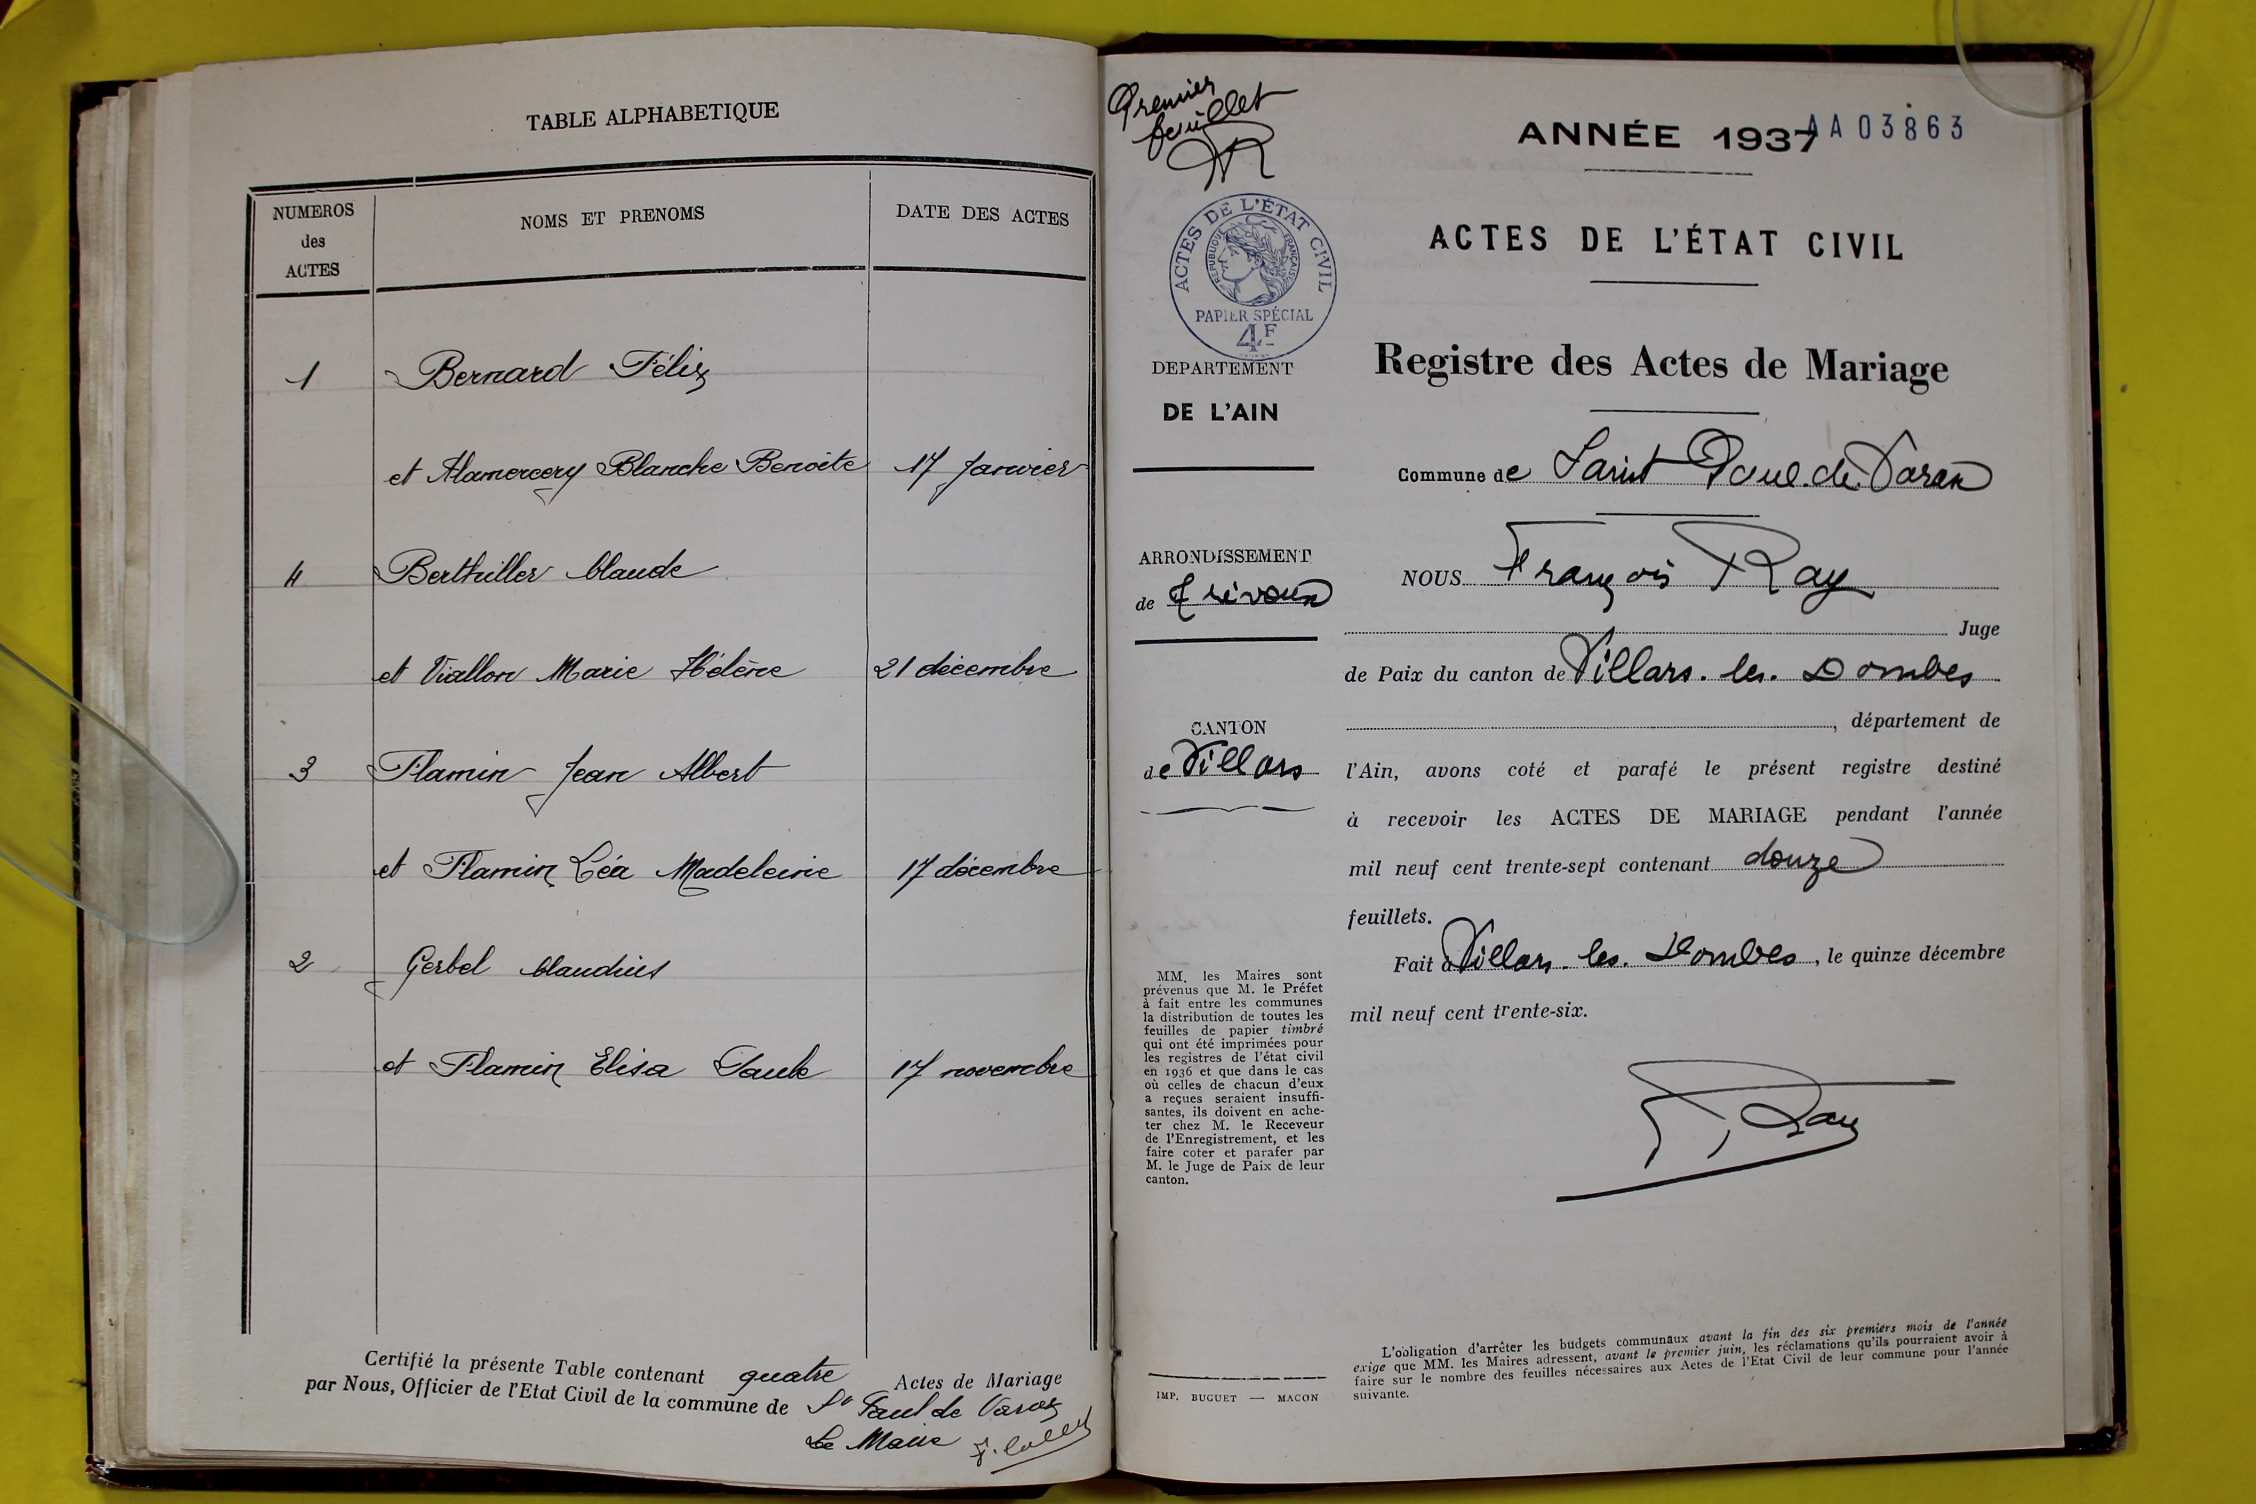 TABLE ALPHABETIQUE
NUMEROS
des
ACTES
NOMS ET PRENOMS
DATE DES ACTES
1 Bernard Félix
et Alamercery Blanche Benoîte 17 Janvier
4 Berthiller Claude
et Viallon Marie Hélène 21 décembre
3 Flamin Jean Albert
et Flamin Léa Madeleine 17 décembre
2 Gerbel Claudius
et Flamin Elisa Paule 17 novembre
Certifié la présente Table contenant quatre Actes de Mariage
par Nous, Officier de l'Etat Civil de la commune de St Paul de Varax
Le Maire
Premier
feuillet
ANNÉE 1937
AA03863
ACTES DE L'ÉTAT CIVIL
RÉPUBLIQUE FRANÇAISE
PAPIER SPÉCIAL
4F
DEPARTEMENT
DE L'AIN
ARRONDISSEMENT
de Trévoux
CANTON
de Villars
MM. les Maires sont
prévenus que M. le Préfet
à fait entre les communes
la distribution de toutes les
feuilles de papier timbré
qui ont été imprimées pour
les registres de l'état civil
en 1936 et que dans le cas
où celles de chacun d'eux
a reçues seraient insuffi-
santes, ils doivent en ache-
ter chez M. le Receveur
de l'Enregistrement, et les
faire coter et parafer par
M. le Juge de Paix de leur
canton.
IMP. BUGUET — MACON
ACTES DE L'ÉTAT CIVIL
Registre des Actes de Mariage
Commune de Saint Paul. de. Varax
NOUS François Ray
Juge
de Paix du canton de Villars. les. Dombes
, département de
l'Ain, avons coté et parafé le présent registre destiné
à recevoir les ACTES DE MARIAGE pendant l'année
mil neuf cent trente-sept contenant douze
feuillets.
Fait à Villars. les. Dombes, le quinze décembre
mil neuf cent trente-six.
F. Ray
L'obligation d'arrêter les budgets communaux avant la fin des six premiers mois de l'année
exige que MM. les Maires adressent, avant le premier juin, les réclamations qu'ils pourraient avoir à
faire sur le nombre des feuilles nécessaires aux Actes de l'Etat Civil de leur commune pour l'année
suivante.